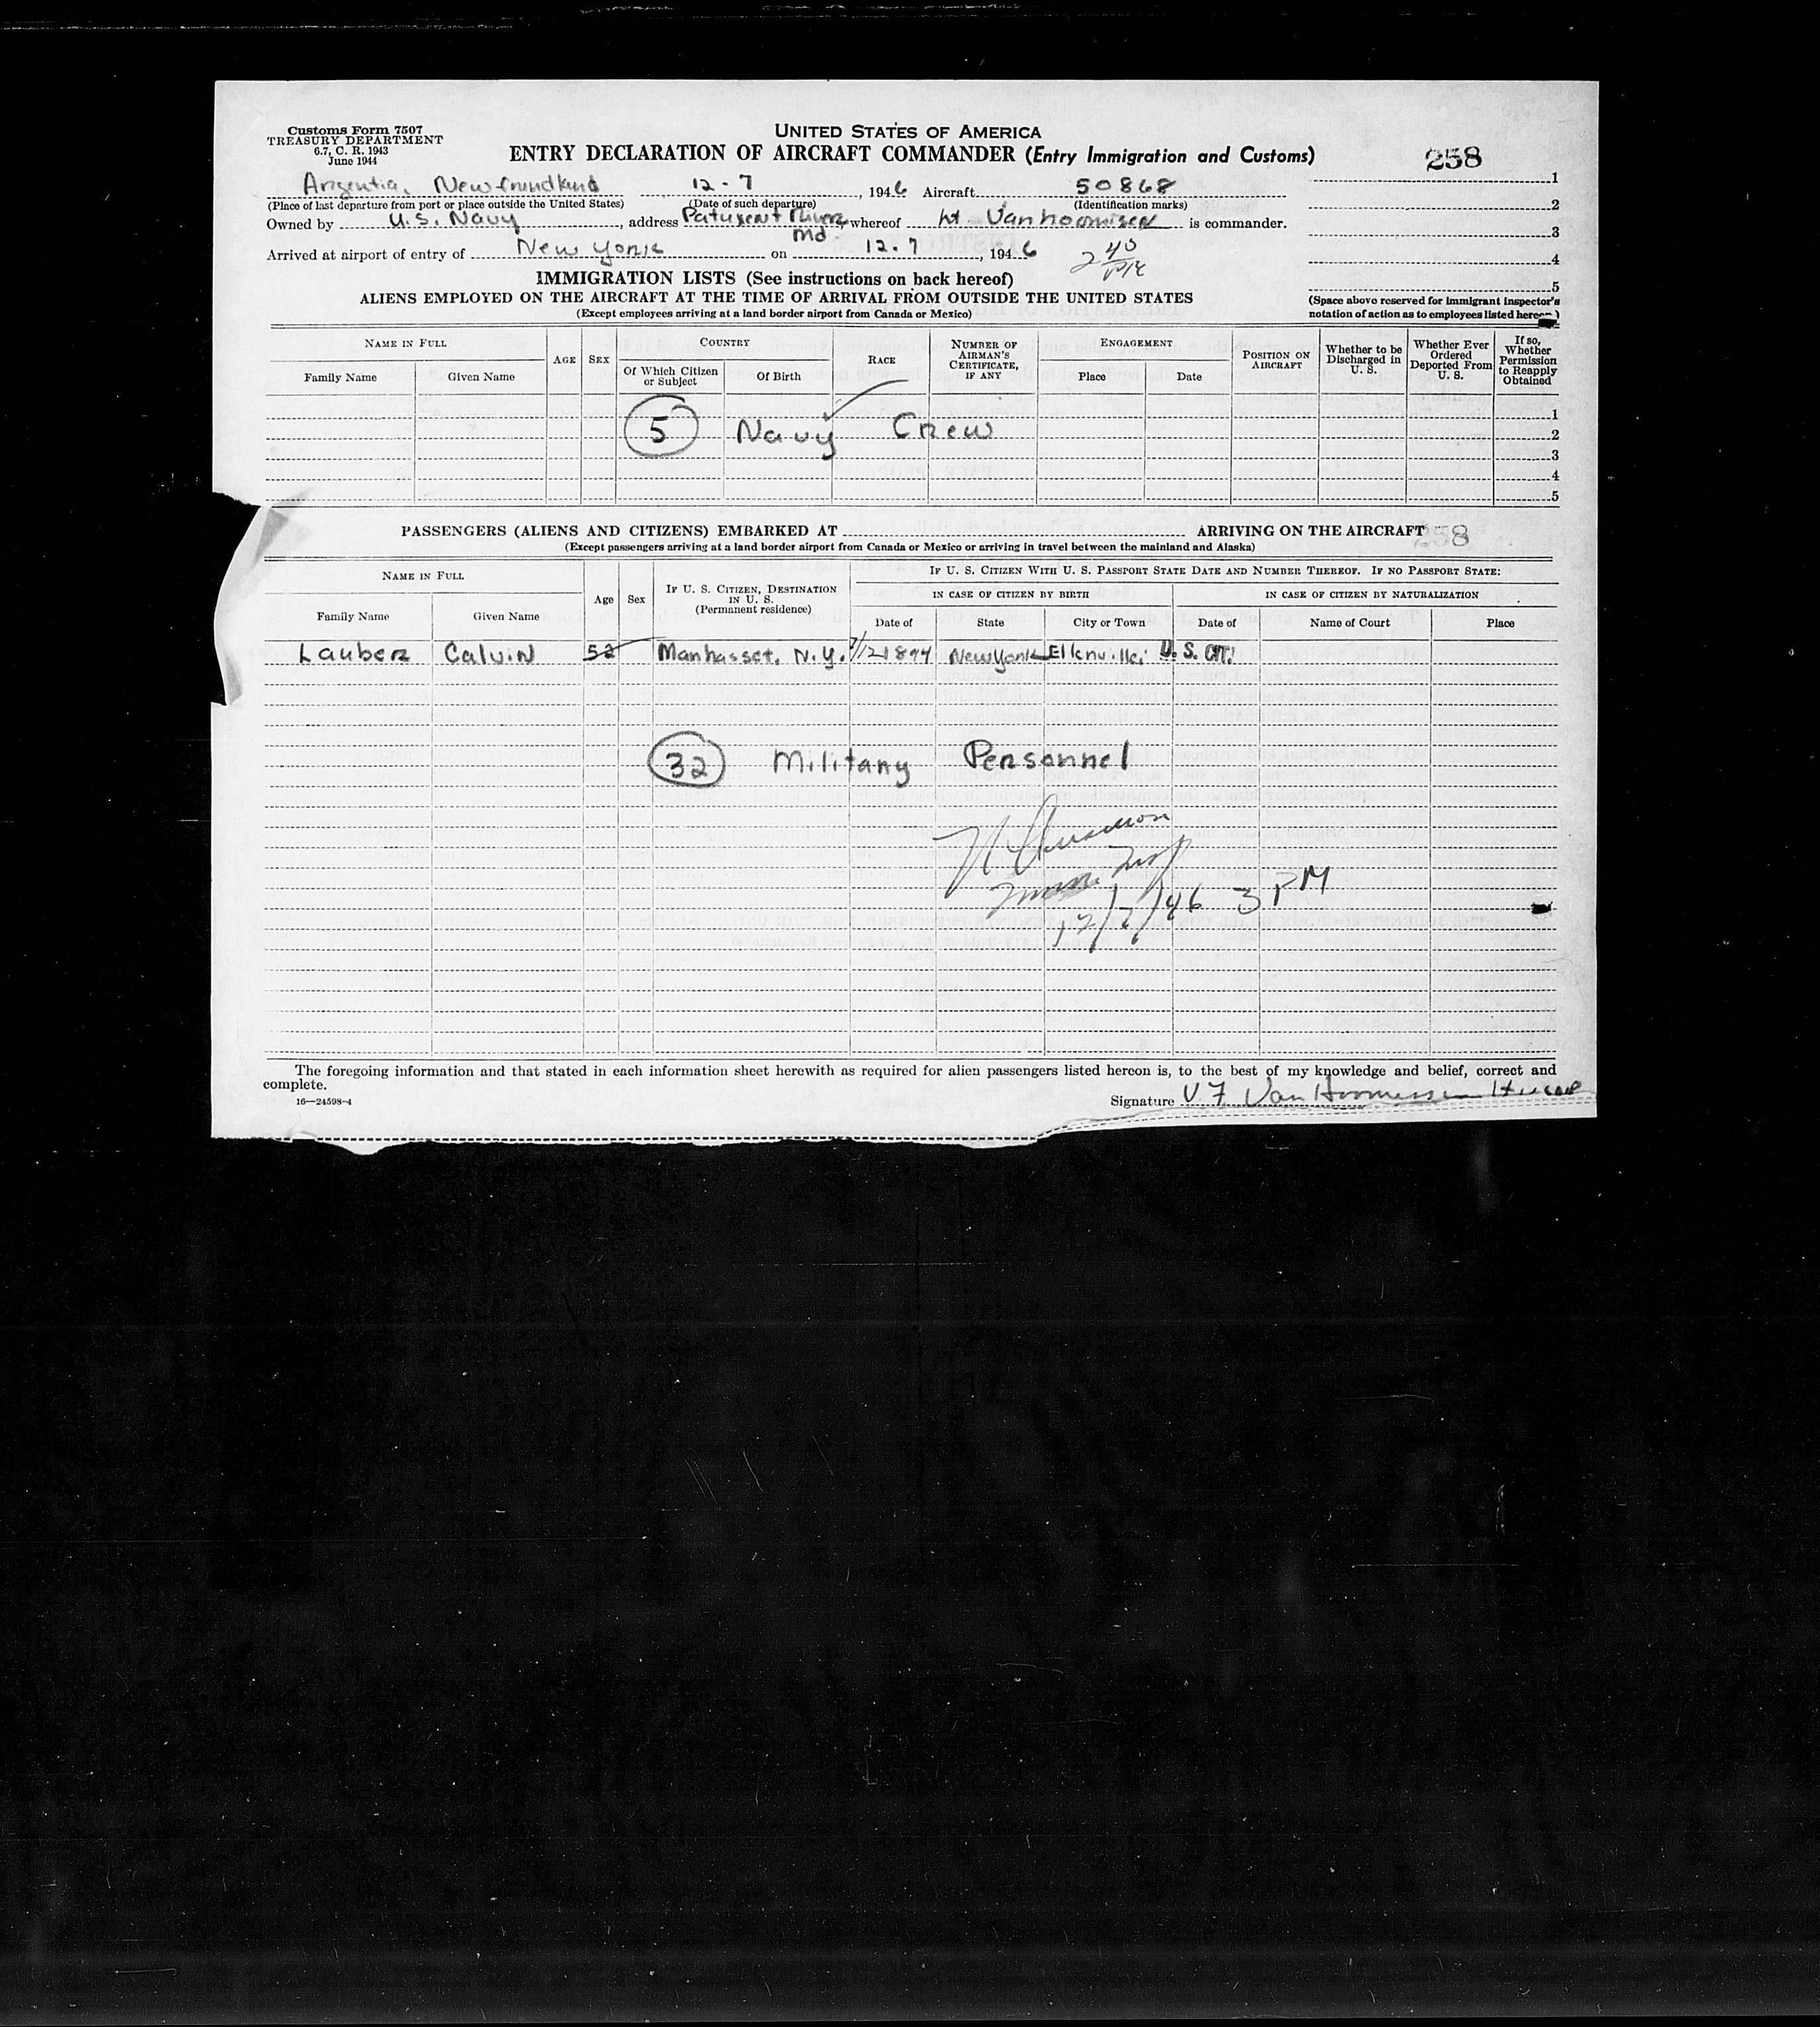 Customs Form 7507
TREASURY DEPARTMENT
6.7, C. R. 1943
June 1944
UNITED STATES OF AMERICA
ENTRY DECLARATION OF AIRCRAFT COMMANDER (Entry Immigration and Customs)
258
Argentia, Newfoundland 12-7, 1946 Aircraft 50868
(Place of last departure from port or place outside the United States) (Date of such departure) (Identification marks)
Owned by U.S. Navy, address Patuxent River, Md whereof Lt. is commander.
Arrived at airport of entry of New York on 12-7, 1946
2 40
1
2
3
4
5
IMMIGRATION LISTS (See instructions on back hereof)
ALIENS EMPLOYED ON THE AIRCRAFT AT THE TIME OF ARRIVAL FROM OUTSIDE THE UNITED STATES
(Except employees arriving at a land border airport from Canada or Mexico)
(Space above reserved for immigrant inspector's notation of action as to employees listed hereon)
NAME IN FULL
Family Name Given Name
AGE SEX
COUNTRY
Of Which Citizen or Subject Of Birth
RACE
NUMBER OF AIRMAN'S CERTIFICATE, IF ANY
ENGAGEMENT
Place Date
POSITION ON AIRCRAFT
Whether to be Discharged in U. S.
Whether Ever Ordered Deported From U. S.
If so, Whether Permission to Reapply Obtained
5 Navy Crew
1
2
3
4
5
PASSENGERS (ALIENS AND CITIZENS) EMBARKED AT ARRIVING ON THE AIRCRAFT
258
(Except passengers arriving at a land border airport from Canada or Mexico or arriving in travel between the mainland and Alaska)
NAME IN FULL
Family Name Given Name
Age Sex
IF U. S. CITIZEN, DESTINATION IN U. S. (Permanent residence)
IF U. S. CITIZEN WITH U. S. PASSPORT STATE DATE AND NUMBER THEREOF. IF NO PASSPORT STATE:
IN CASE OF CITIZEN BY BIRTH IN CASE OF CITIZEN BY NATURALIZATION
Date of State City or Town Date of Name of Court Place
Lauber Calvin 52 Manhasset, N.Y. 7/12/1894 New York Ellenville U.S. Cit.
32 Military Personnel
12/7/46 3 PM
The foregoing information and that stated in each information sheet herewith as required for alien passengers listed hereon is, to the best of my knowledge and belief, correct and
complete.
16—24598-4
Signature V F